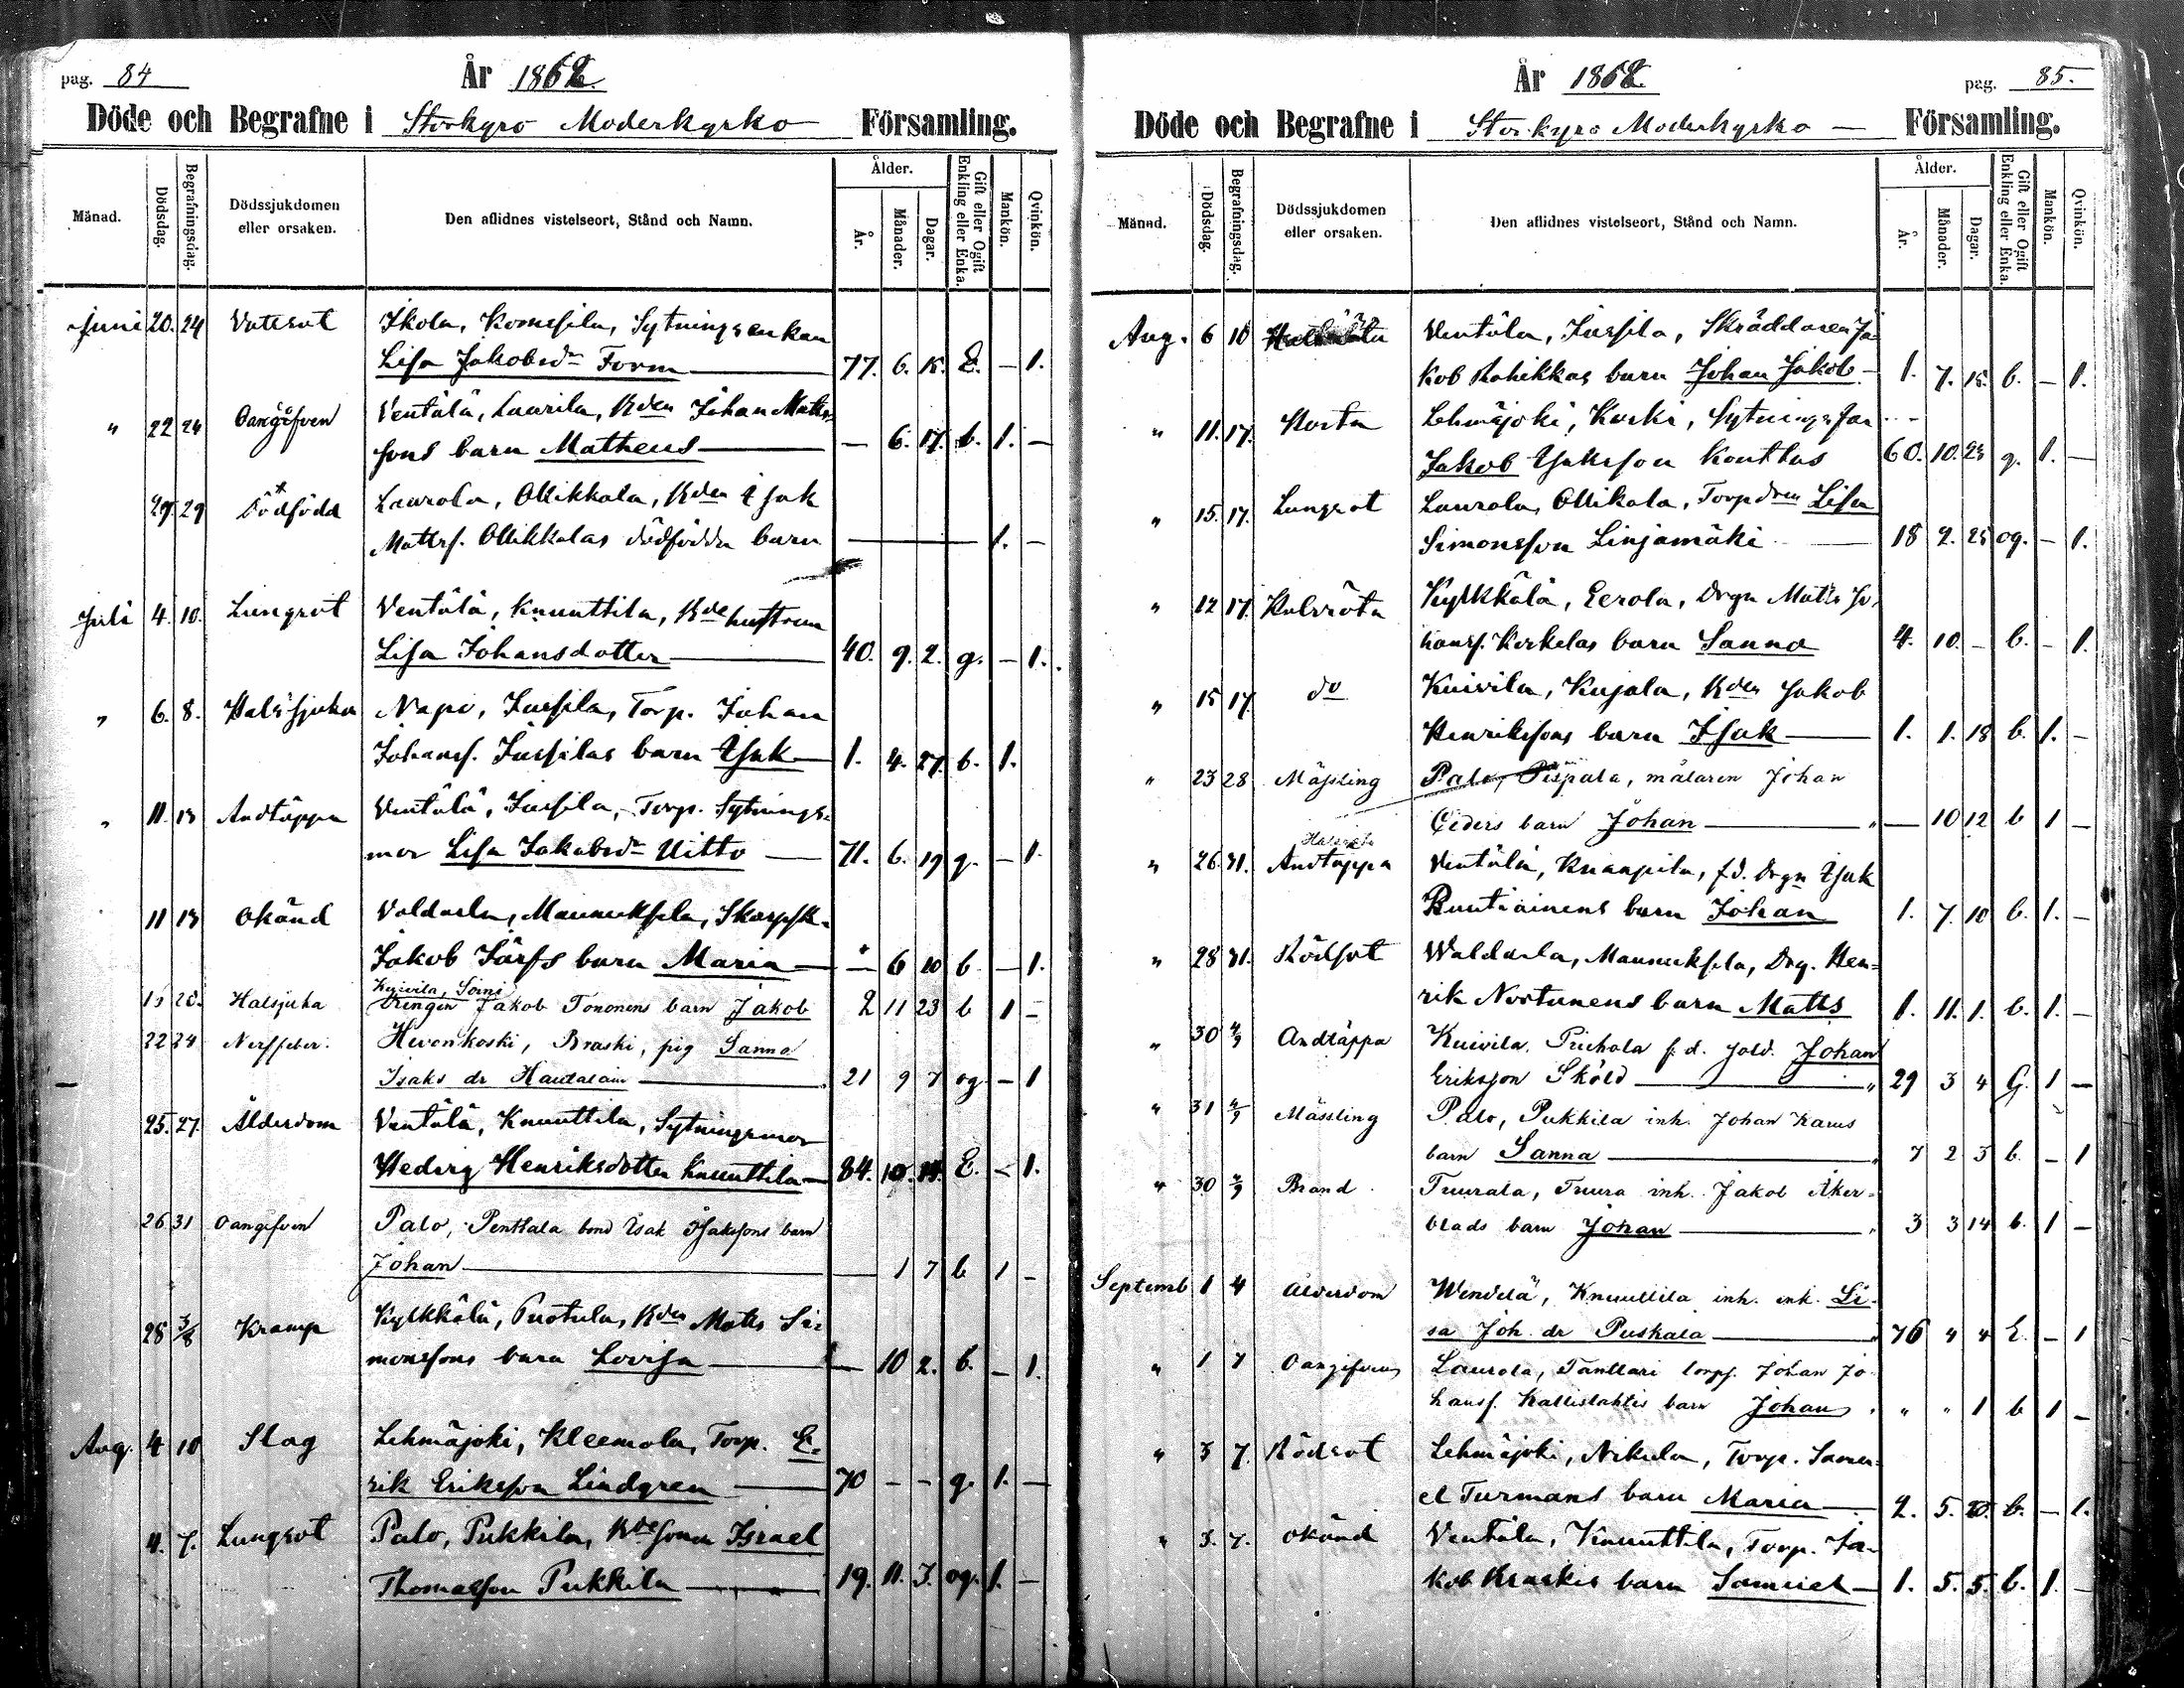 pag. 84
År 1862.
Döde och Begrafne i Storkyro Moderkyrko Församling.
Månad. Dödsdag. Begrafningsdag. Dödssjukdomen eller orsaken. Den aflidnes vistelseort, Stånd och Namn. Ålder. År. Månader. Dagar. Gift eller Ogift Enkling eller Enka. Mankön. Qvinkön.
Juni 20. 24 Vatesot Ikola, Sytningsenkan
Lisa Jakobsdr Form 77. 6. 15. E. — 1.
" 22 24 Oangifven Ventälä, Laurila, Bden Johan Matts-
sons barn Matheus — 6. 17. b. 1. —
29. 29 Dödfödd Laurola, Ollikkala, Bden Isak
Mattss. Ollikkalas dödfödda barn — 1. —
Juli 4. 10. Lungsot Ventälä, Knuuttila, Bde hustrun
Lisa Johansdotter 40. 9. 2. g. — 1.
" 6. 8. Halssjuka Napo, Jussila, Torp. Johan
Johanss. Jussilas barn Isak 1. 4. 27. b. 1.
" 11. 13 Andtäppa Ventälä, Jussila, Torp. Sytnings-
mor Lisa Jakobsdr Uitto 71. 6. 19 g. — 1.
11 13 Okänd Valdarla, Maunuksela, Skarpsk.
Jakob Järfs barn Maria — 6 10 b. — 1.
15 20. Halsjuka Kuivila, Soini
Drängen Jakob Tononens barn Jakob 2 11 23 b 1 —
22 24 Nerffeber. Hevonkoski, Braski, pig Sanna
Isaks dr Hautalain 21 9 7 og — 1
25. 27. Ålderdom Ventälä, Knuuttila, Sytningsmor
Hedvig Henriksdotter Knuuttila 84. 10. 14. E. — 1.
26 31 Oangifven Palo, Penttala bond Isak Isakssons barn
Johan — 1 7 b 1 —
28 3/8 Kramp Kylkkälä, Puotula, Bden Matts Si-
monssons barn Lovisa — 10 2. b. — 1.
Aug. 4 10 Slag Lehmäjoki, Kleemola, Torp. E-
rik Eriksson Lindgren 70 — — g. 1. —
4. 7. Lungsot Palo, Pukkila, Bde sonen Israel
Thomasson Pukkila 19. 11. 3. og. 1. —
År 1862.
pag. 85.
Döde och Begrafne i Storkyro Moderkyrko — Församling.
Månad. Dödsdag. Begrafningsdag. Dödssjukdomen eller orsaken. Den aflidnes vistelseort, Stånd och Namn. Ålder. År. Månader. Dagar. Gift eller Ogift Enkling eller Enka. Mankön. Qvinkön.
Aug. 6 10 Ventälä, Jussila, Skräddaren Ja-
kob Rahikkas barn Johan Jakob 1. 7. 15. b. — 1.
" 11. 17. Hosta Lehmäjoki, Koski, Sytningsfar
Jakob Isaksson Kouttus 60. 10. 23 g. 1. —
" 15. 17. Lungsot Laurola, Ollikala, Torpdrn Lisa
Simonsson Linjamäki 18 2. 25 og. — 1.
" 12 17. Halsröta Kylkkälä, Eerola, Drgn Matts Jo-
hanss. Korkelas barn Sanna 4. 10. — b. — 1.
" 15 17. do Kuivila, Kujala, Bden Jakob
Henrikssons barn Isak 1. 1. 18 b. 1. —
" 23 28 Mässling Palo, Pispala, målaren Johan
Ceders barn Johan — 10 12 b 1 —
" 26. 31. Andtäppa Ventälä, Knaapila, f.d. Drgn Isak
Runtiainens barn Johan 1. 7. 10 b. 1. —
" 28 31. Rödsot Waldarla, Maunuksela, Drg. Hen-
rik Nortunens barn Matts 1. 11. 1. b. 1. —
" 30 4/9 Andtäppa Kuivila, Piehola f.d. sold. Johan
Eriksson Sköld 29 3 4 G. 1 —
" 31 4/9 Mässling Palo, Pukkila inh. Johan Karus
barn Sanna 7 2 3 b. — 1
" 30 Brand Tuurala, Tuura inh. Jakob Åker-
blads barn Johan 3 3 14 b. 1 —
Septemb 1 4 Ålderdom Wendelä, Knuuttila inh. enk. Li-
sa Joh. dr Puskala 76 4 4 E. — 1
" 1 7 Oangifven Laurola, Tanttari torpf. Johan Jo-
hanss. Kallislahtis barn Johan " " 1 b 1 —
" 3 7. Rödsot Lehmäjoki, Nikula, Torp. Samu-
el Turmans barn Maria 2. 5. 20. b. — 1.
" 3. 7. Okänd Ventälä, Knuuttila, Torp. Ja-
kob Kraskis barn Samuel 1. 5. 5. b. 1. —